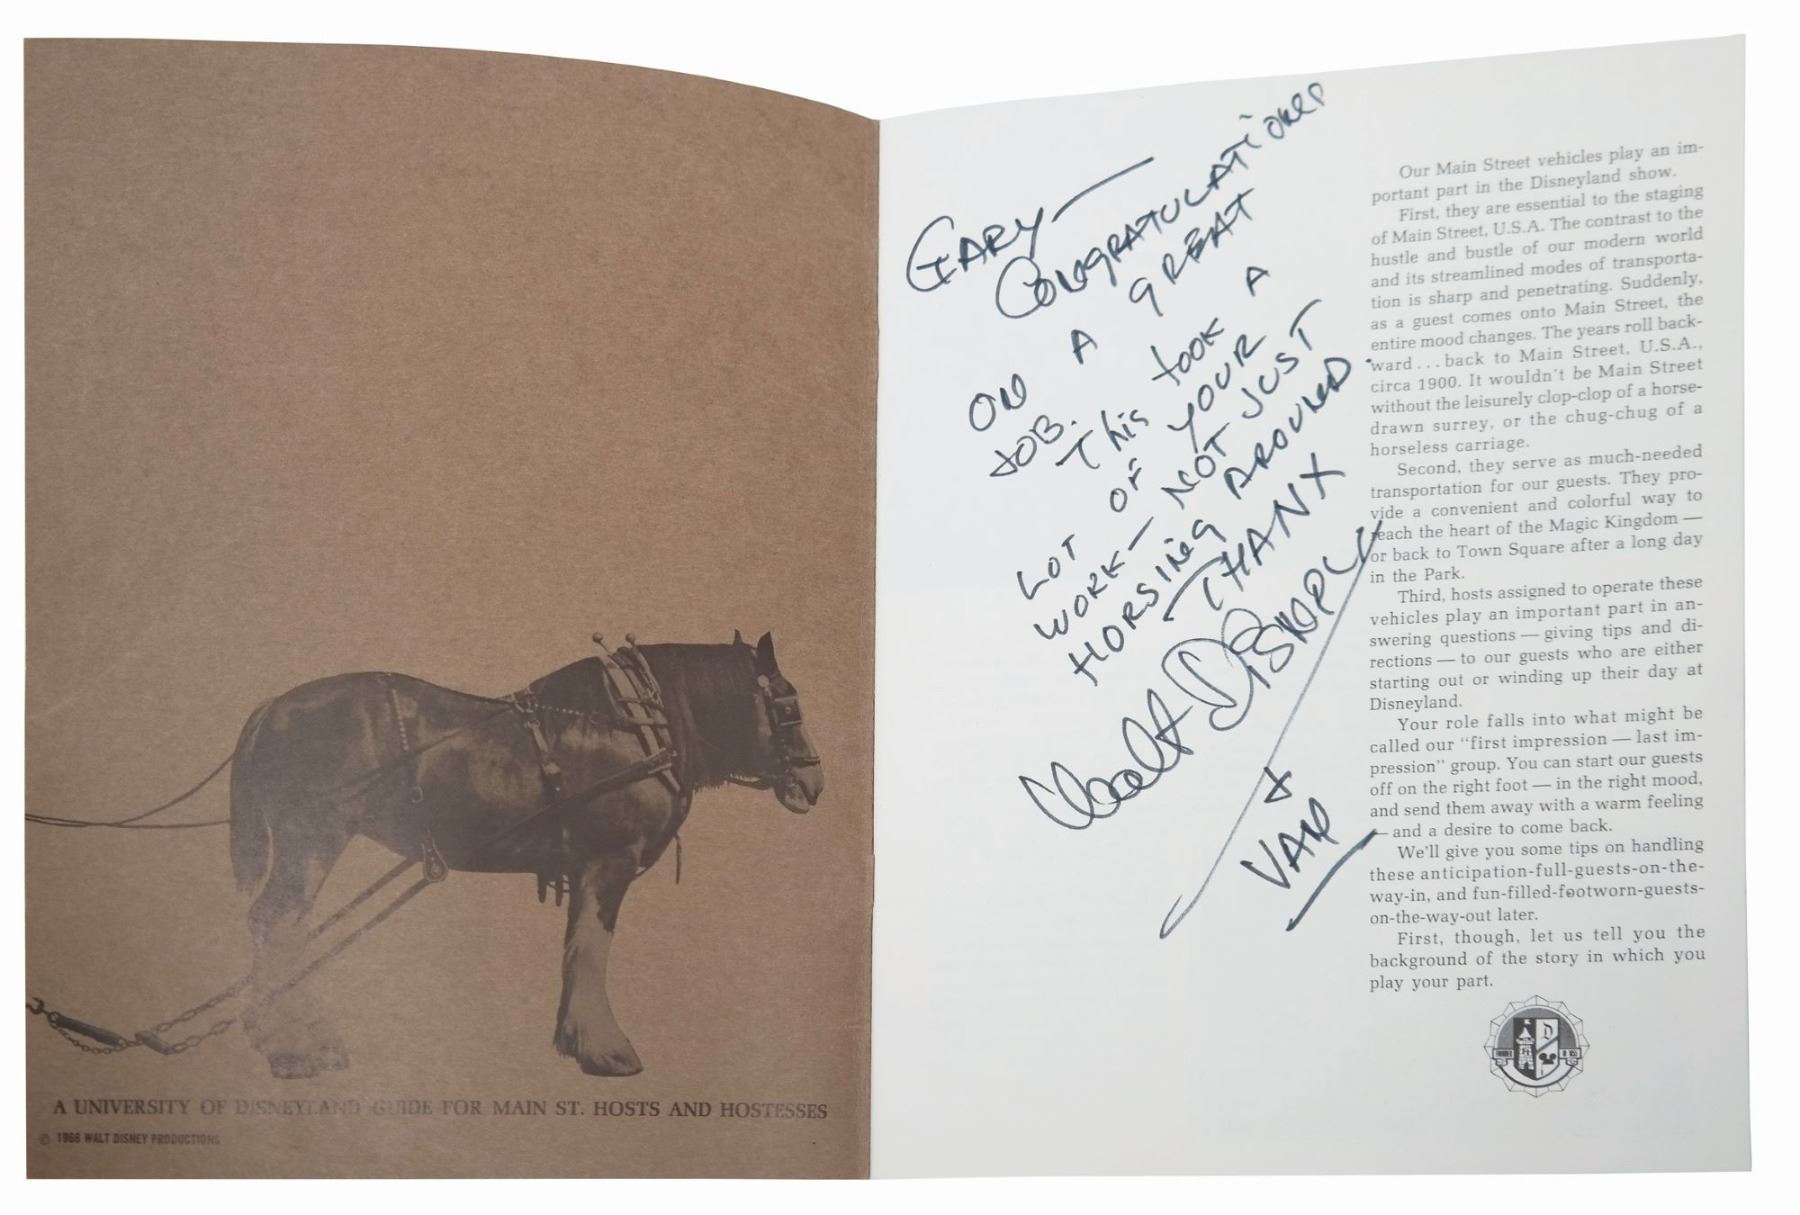 A UNIVERSITY OF DISNEYLAND GUIDE FOR MAIN ST. HOSTS AND HOSTESSES
© 1966 WALT DISNEY PRODUCTIONS
GARY—
CONGRATULATIONS
ON A GREAT
JOB. This took A
LOT OF YOUR
WORK — NOT JUST
HORSING AROUND.
THANX
Walt Disney
& VAN
Our Main Street vehicles play an im-
portant part in the Disneyland show.
First, they are essential to the staging
of Main Street, U.S.A. The contrast to the
hustle and bustle of our modern world
and its streamlined modes of transporta-
tion is sharp and penetrating. Suddenly,
as a guest comes onto Main Street, the
entire mood changes. The years roll back-
ward . . . back to Main Street, U.S.A.,
circa 1900. It wouldn't be Main Street
without the leisurely clop-clop of a horse-
drawn surrey, or the chug-chug of a
horseless carriage.
Second, they serve as much-needed
transportation for our guests. They pro-
vide a convenient and colorful way to
reach the heart of the Magic Kingdom —
or back to Town Square after a long day
in the Park.
Third, hosts assigned to operate these
vehicles play an important part in an-
swering questions — giving tips and di-
rections — to our guests who are either
starting out or winding up their day at
Disneyland.
Your role falls into what might be
called our "first impression — last im-
pression" group. You can start our guests
off on the right foot — in the right mood,
and send them away with a warm feeling
— and a desire to come back.
We'll give you some tips on handling
these anticipation-full-guests-on-the-
way-in, and fun-filled-footworn-guests-
on-the-way-out later.
First, though, let us tell you the
background of the story in which you
play your part.
D